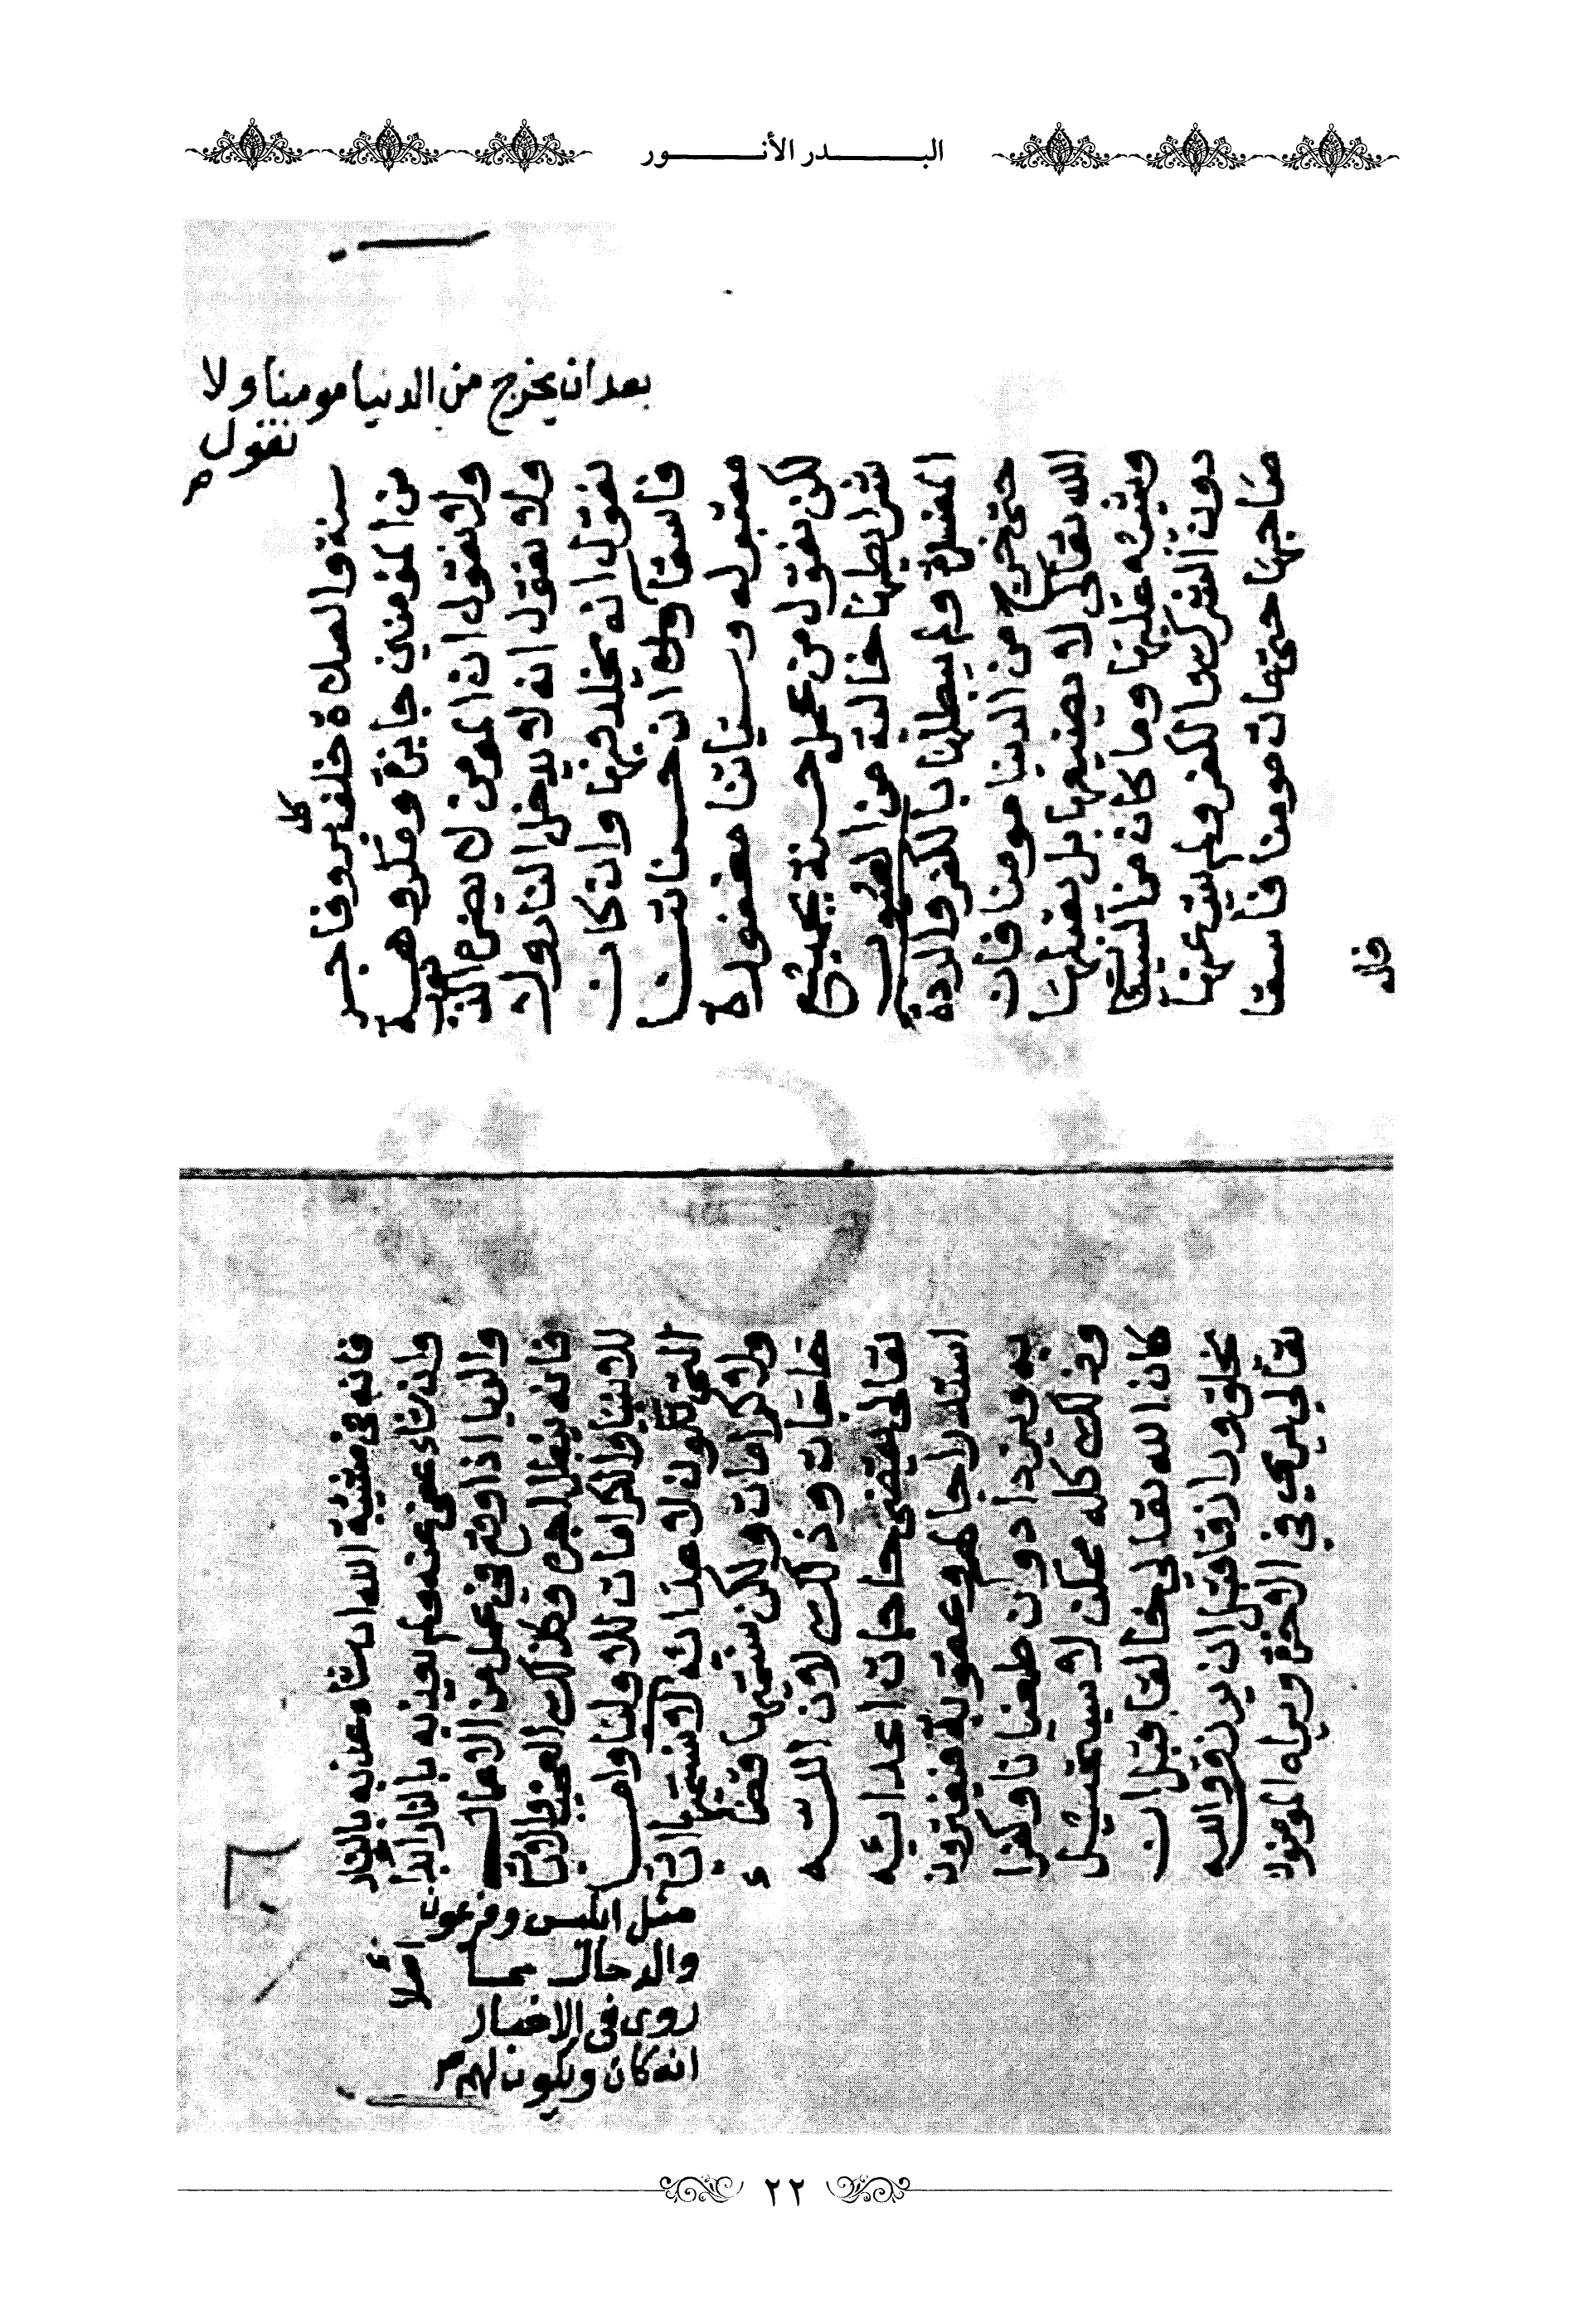 البدر الأنور
بعد ان يخرج من الدنيا مومنا ولا
نقول
سنة والصلاة خلف كل بر وفاجر
من المؤمنين جايزة ومكروهة
ولا نقول ان المومن لا يضره الذنوب
ولا نقول انه لا يدخل النار ولا
نقول انه يخلد فيها وان كان
فاسقا ولا ان حسناتنا
مقبوله وسيأتنا مغفورة
لكن نقول من عمل حسنة بجميع
شرايطها خالية من العيوب
المفسدة ولم يبطلها بالكفر والردة
حتى خرج من الدنيا مومنا فان
الله تعالى لا يضيعها بل يقبلها
ويثيبه عليها وما كان من السيات
دون الشرك والكفر ولم يتب عنها
صاحبها حتى مات مومنا فاسقا
فانه
فانه في مشية الله ان شاء عذبه بالنار
وان شاء عفى عنه ولم يعذبه بالنار ابدا
اصلا
والريا اذا وقع في عمل من الاعمال
فانه يبطل اجره وكذلك العجب والايات
للانبيا والكرامات للاوليا واما
التي تكون لاعدائه لا نسميها ايات
مثل ابليس وفرعون
والدجال مما
روى في الاخبار
انه كان ويكون لهم
ولا كرامات ولكن نسميها قضاء
حاجات وذلك لان الله
تعالى يقضي حاجات اعدائه
استدراجا لهم وعقوبة فيغترون
به ويزدادون طغيانا وكفرا
وذلك كله ممكن لا يستحيل
كان الله تعالى خالقا قبل ان
يخلق ورازقا قبل ان يرزق والله
تعالى يرى في الاخرة ويراه المومنون
٢٢